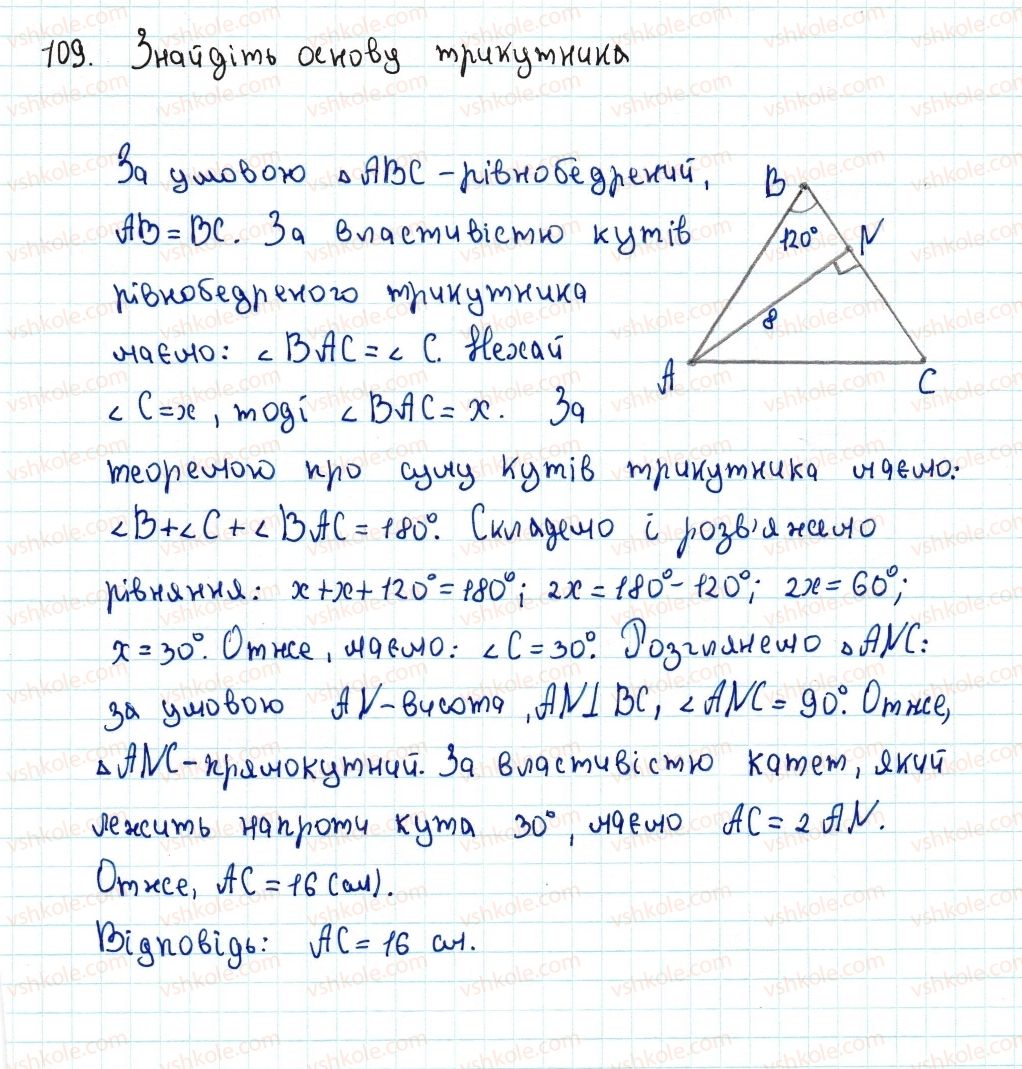 109. Знайдіть основу трикутника
За умовою △ABC - рівнобедрений,
AB = BC. За властивістю кутів
рівнобедреного трикутника
маємо: ∠BAC = ∠C. Нехай
∠C = x, тоді ∠BAC = x. За
теоремою про суму кутів трикутника маємо:
∠B + ∠C + ∠BAC = 180°. Складемо і розв'яжемо
рівняння: x + x + 120° = 180°; 2x = 180° - 120°; 2x = 60°;
x = 30°. Отже, маємо: ∠C = 30°. Розглянемо △ANC:
за умовою AN - висота, AN⊥BC, ∠ANC = 90°. Отже,
△ANC - прямокутний. За властивістю катет, який
лежить напроти кута 30°, маємо AC = 2 AN.
Отже, AC = 16 (см).
Відповідь: AC = 16 см.
B
120°
N
8
A
C
vshkole.com